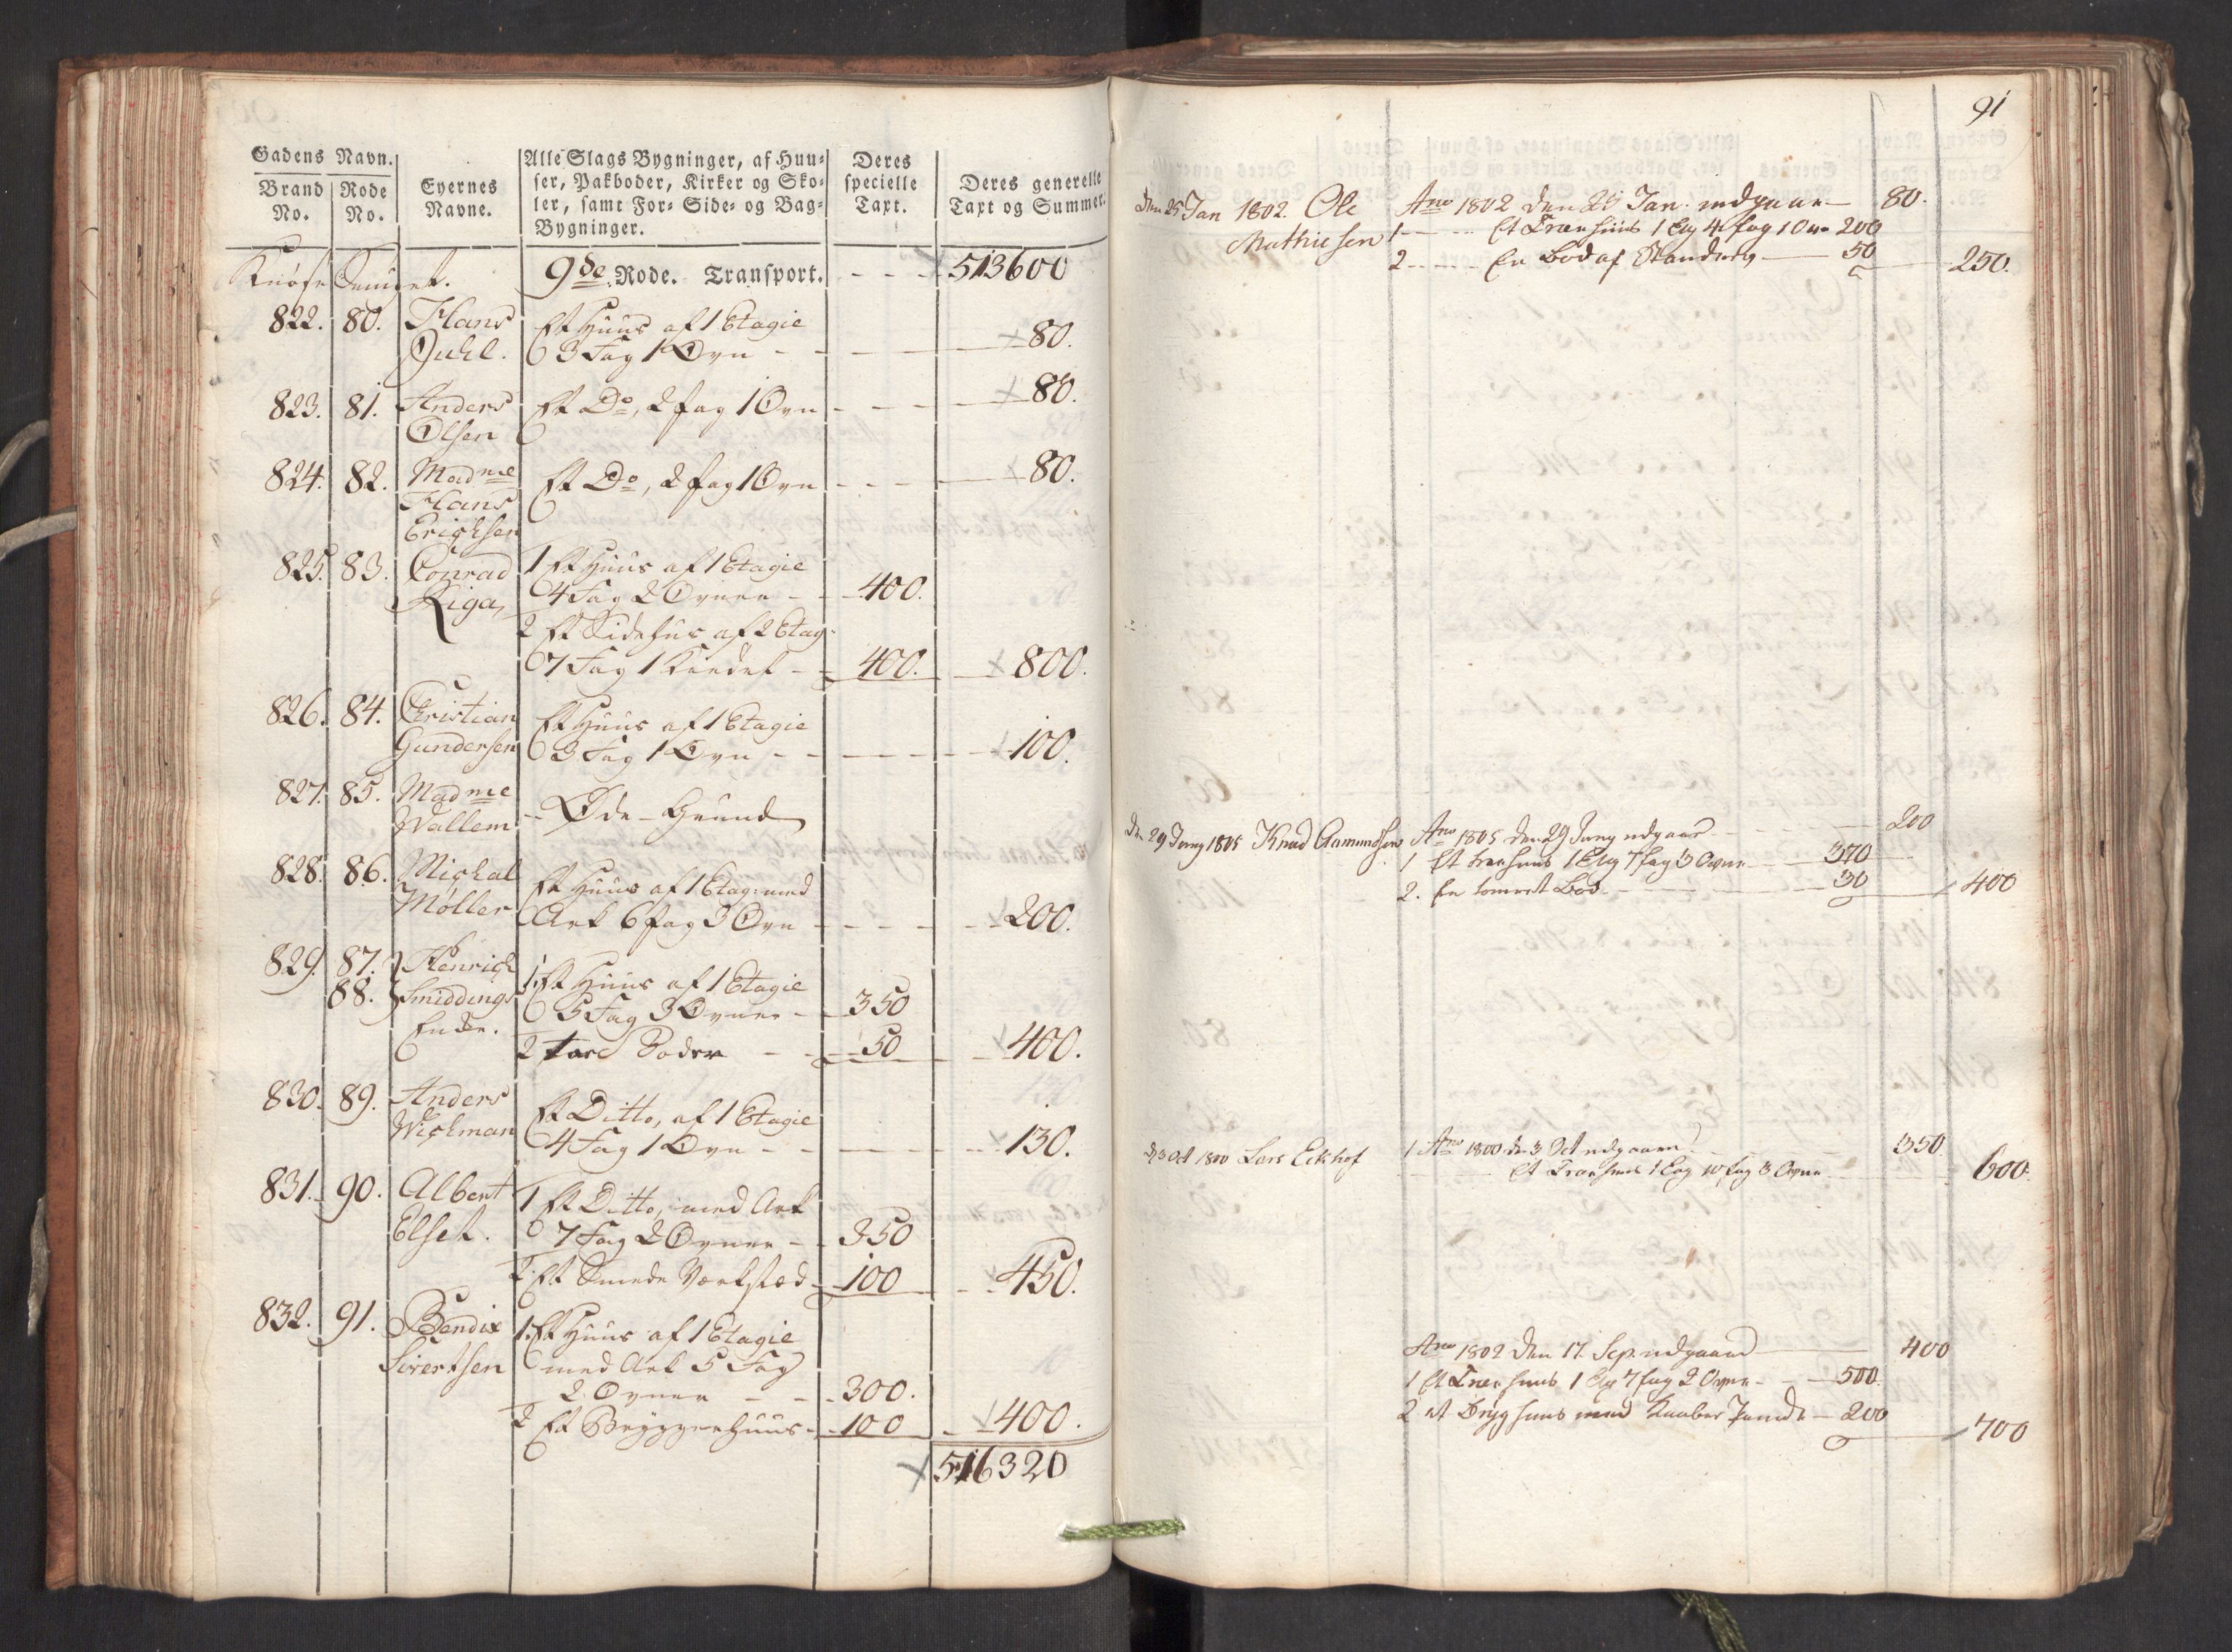 Gadens Navn.
Brand No.
Rode No.
Eyernes Navne.
Alle Slags Bygninger, af Huu-
ser, Pakboder, Kirker og Sko-
ler, samt For- Side- og Bag-
Bygninger.
Deres specielle Taxt.
Deres generelle Taxt og Summer.
9de Rode. Transport. 513600
822. 80. Hans Et Huus af 1 Etagie
Juhl. 3 Fag 1 Ovn 80.
823. 81. Anders Et Do, 2 fag 1 Ovn 80.
Olsen
824. 82. Madme Et Do, 2 fag 1 Ovn 80.
Hans
Erichsen
825. 83. Conrad 1 Et Huus af 1 Etagie
Riga, 4 Fag 2 Ovner 400.
2 Et Sidehus af 2 Etag.
7 Fag 1 Kiedel 400. 800.
826. 84. Christian Et Huus af 1 Etagie
Gundersen 3 Fag 1 Ovn 100.
827. 85. Madme Øde-Grund
Wallem
828. 86. Michal Et Huus af 1 Etag: med
Møller Ark 6 fag 3 Ovn 200.
829. 87. Henrich 1. Et Huus af 1 Etagie
88. Smiddings 5 Fag 3 Ovner 350
Enke. 2 Boder 50 400.
830. 89. Anders Et Ditto, af 1 Etagie
Wichman 4 Fag 1 Ovn 130.
831. 90. Albert 1 Et Ditto, med Ark
Elset. 7 Fag 2 Ovner 350
2. Et Smede Værksted 100 450.
832. 91. Bendix 1. Et Huus af 1 Etagie
Sivertsen med Ark 5 Fag
2 Ovner 300.
2 Et Bryggerhuus 100 400.
516320
91
den 25 Jan 1802. Ole Ano 1802 den 25 Jan. udgaar 80.
Mathiesen 1 Et Træehuus 1 Etg 4 fag 1 Ovn 200
2 En Bod af Standverk 50 250.
den 29 Juny 1805 Knud Aamundsen Ano 1805 den 29 Juny udgaar 200
1 Et træehuus 1 Etg 7 fag 3 Ovne 370
2. En tomret Bod 30 400
d 3 Oct 1800 Lars Eckhof 1 Ano 1800 d 3 Oct udgaaer 350
Et Træehuus 1 Etg 10 fag 3 Ovne 600.
Ano 1802 den 17. Sep. udgaaed 400
1 Et Træehuus 1 Etg 7 fag 2 Ovne 500.
2 et Bryghuus med Kaaber Pande 200 700